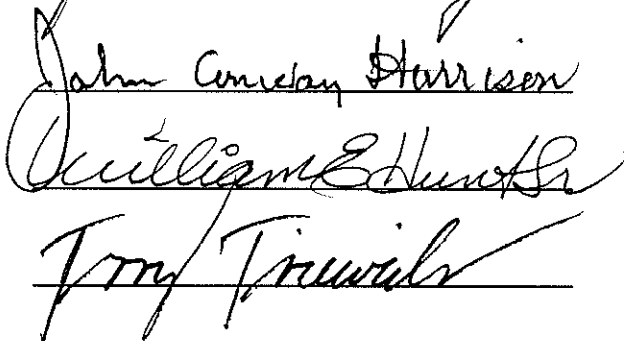 John Conway Harrison
William E Hunt Sr
Terry Trieweiler